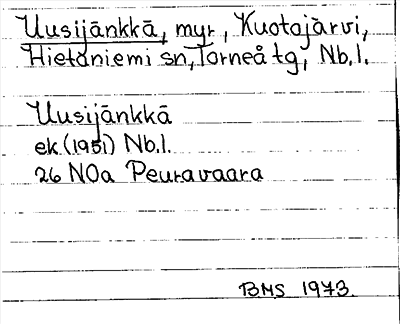 Uusijänkkä, myr, Kuotajärvi,
Hietaniemi sn, Torneå tg, Nb.l.
Uusijänkkä
ek.(1951) Nb.l.
26 NOa Peuravaara
BMS 1973.